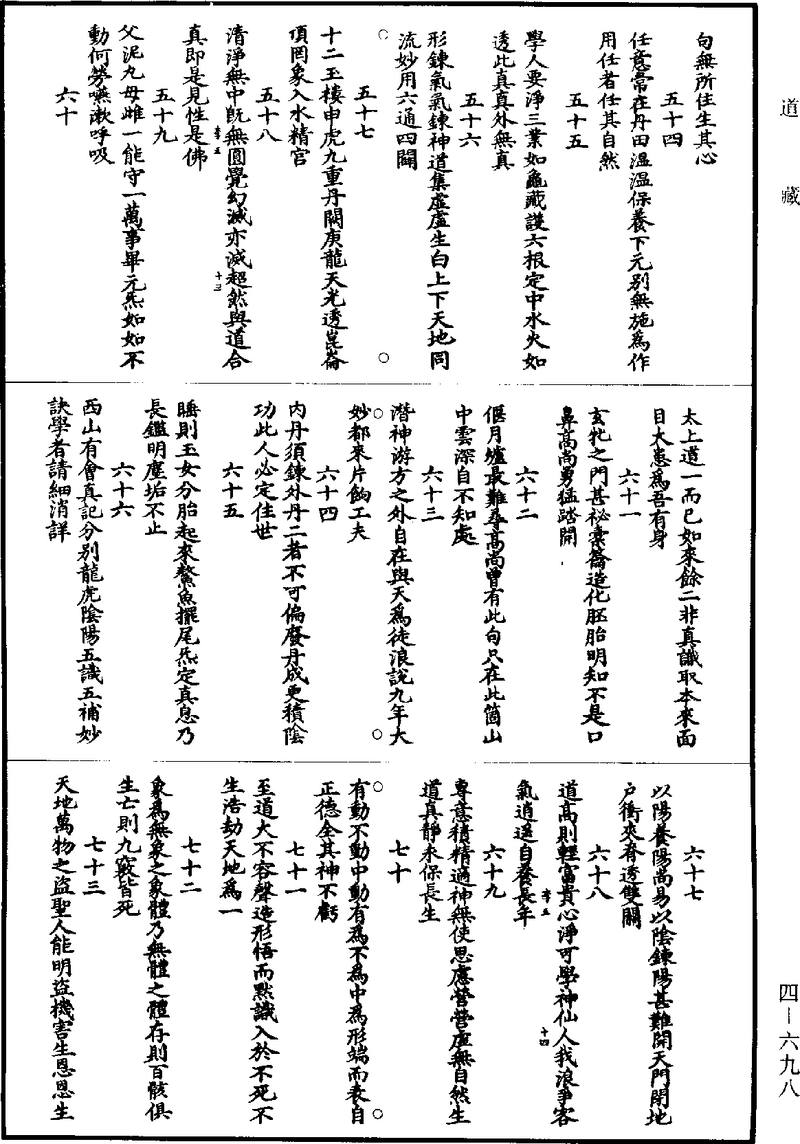 道藏
句無所住生其心
五十四
任意常在丹田溫溫保養下元別無施為作
用任者任其自然
五十五
學人要淨三業如龜藏護六根定中水火如
透此真真外無真
五十六
形鍊氣氣鍊神道集虛虛生白上下天地同
流妙用六通四闢
五十七
十二玉樓申虎九重丹闕庚龍天光透崑崙
頂罔象入水精宮
五十八
清淨無中既無圓覺幻滅亦滅超然與道合
真即是見性是佛
五十九
父泥丸母雌一能守一萬事畢元炁如如不
動何勞嚥漱呼吸
六十
太上道一而已如來餘二非真識取本來面
目大患為吾有身
六十一
玄牝之門甚祕橐籥造化胚胎明知不是口
鼻高尚勇猛踏開
六十二
偃月爐最難尋高尚曾有此句只在此箇山
中雲深自不知處
六十三
潛神游方之外自在與天為徒浪說九年大
妙都來片餉工夫
六十四
內丹須鍊外丹二者不可偏廢丹成更積陰
功此人必定住世
六十五
睡則玉女分胎起來鰲魚擺尾炁定真息乃
長鑑明塵垢不止
六十六
西山有會真記分別龍虎陰陽五識五補妙
訣學者請細消詳
六十七
以陽養陽尚易以陰鍊陽甚難開天門閉地
戶衝夾脊透雙關
六十八
道高則輕富貴心淨可學神仙人我浪爭客
氣逍遥自養長年
六十九
專意積精適神無使思慮營營虛無自然生
道真靜永保長生
七十
有動不動中動有為不為中為形端而表自
正德全其神不虧
七十一
至道大不容聲造形悟而默識入於不死不
生浩劫天地為一
七十二
象為無象之象體乃無體之體存則百骸俱
生亡則九竅皆死
七十三
天地萬物之盜聖人能明盜機害生恩恩生
四－六九八